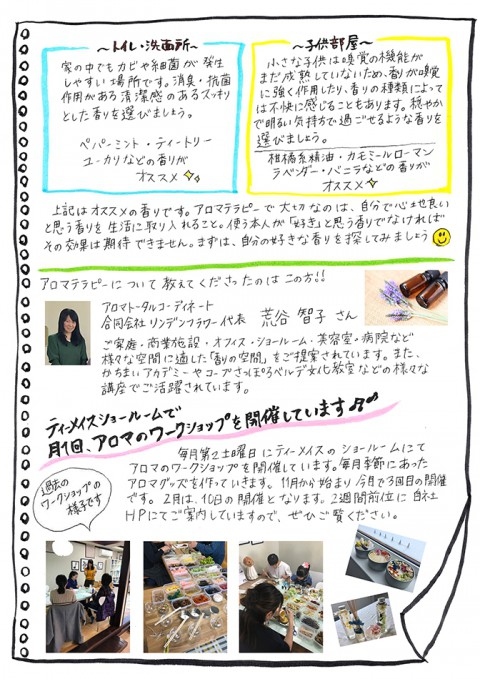 ～トイレ・洗面所～
家の中でもカビや細菌が発生
しやすい場所です。消臭・抗菌
作用がある清潔感のあるスッキリ
とした香りを選びましょう。
ペパーミント・ティートリー
ユーカリなどの香りが
オススメ
～子供部屋～
小さな子供は嗅覚の機能が
まだ成熟していないため、香りが嗅覚
に強く作用したり、香りの種類によって
は不快に感じることもあります。穏やか
で明るい気持ちで過ごせるような香りを
選びましょう。
柑橘系精油・カモミールローマン
ラベンダー・バニラなどの香りが
オススメ
上記はオススメの香りです。アロマテラピーで大切なのは、自分で心地良い
と思う香りを生活に取り入れること。使う本人が「好き」と思う香りでなければ
その効果は期待できません。まずは、自分の好きな香りを探してみましょう
アロマテラピーについて教えてくださったのはこの方!!
アロマトータルコーディネート
合同会社リンデンフラワー代表 荒谷 智子 さん
ご家庭・商業施設・オフィス・ショールーム・美容室・病院など
様々な空間に適した「香りの空間」をご提案されています。また、
かちまいアカデミーやコープさっぽろベルデ文化教室などの様々な
講座でご活躍されています。
ティーメイスショールームで
月1回、アロマのワークショップを開催しています♫♪
毎月第2土曜日にティーメイスのショールームにて
アロマのワークショップを開催しています。毎月季節にあった
アロマグッズを作っていきます。11月から始まり今月で3回目の開催
です。2月は、10日の開催となります。2週間前位に自社
HPにてご案内していますので、ぜひご覧ください。
過去の
ワークショップの
様子です